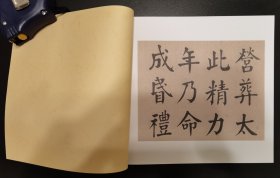 營葬太
此精力
年乃命
成昏禮